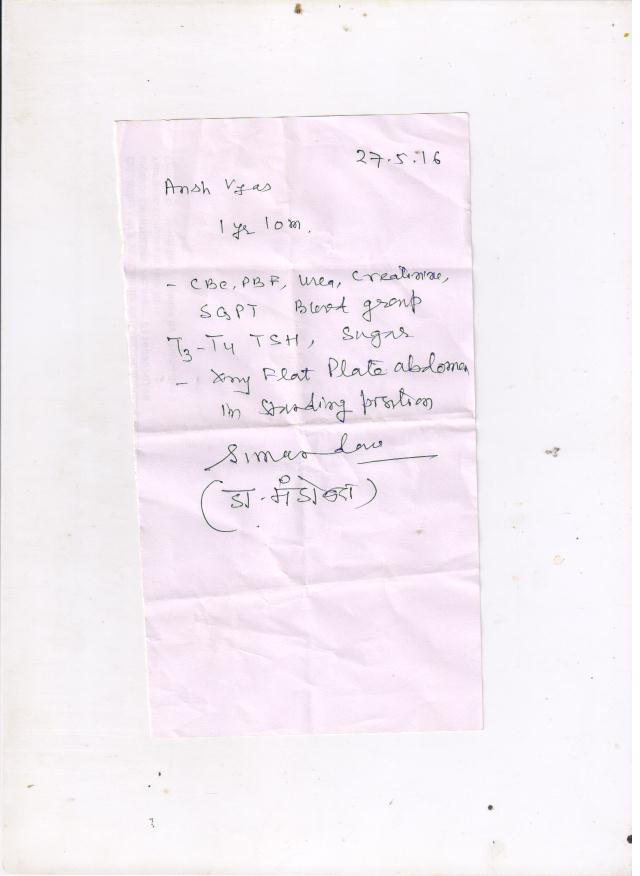 27.5.16
Ansh Vyas
1 yr 10 m.
- CBC, PBF, Urea, Creatinine,
SGPT Blood group
T3-T4 TSH, Sugar
- Xray Flat Plate abdomen
in standing position
(डा.